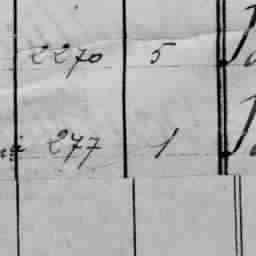 2270 5
277 1